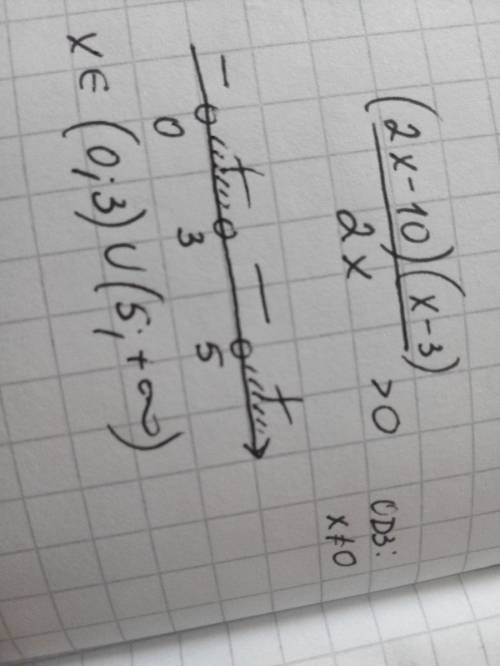 (2x-10)(x-3)
2x
>0
ОДЗ:
x≠0
- + - +
0 3 5
x∈ (0; 3) ∪ (5; +∞)